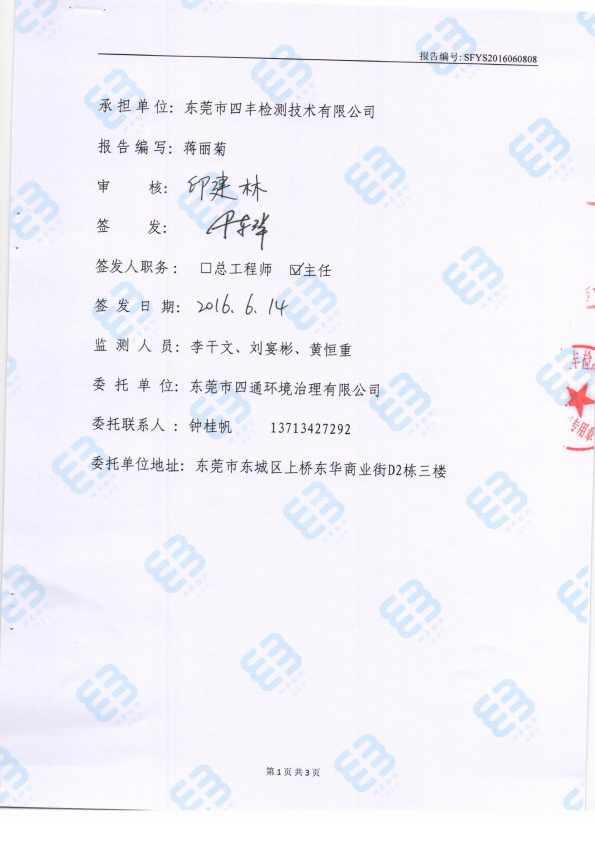 报告编号: SFYS2016060808
承担单位: 东莞市四丰检测技术有限公司
报告编写: 蒋丽菊
审 核: 印建林
签 发:
签发人职务: □总工程师 ☑主任
签发日期: 2016.6.14
监测人员: 李干文、刘宴彬、黄恒重
委托单位: 东莞市四通环境治理有限公司
委托联系人: 钟桂帆 13713427292
委托单位地址: 东莞市东城区上桥东华商业街D2栋三楼
丰检
专用章
第1页共3页